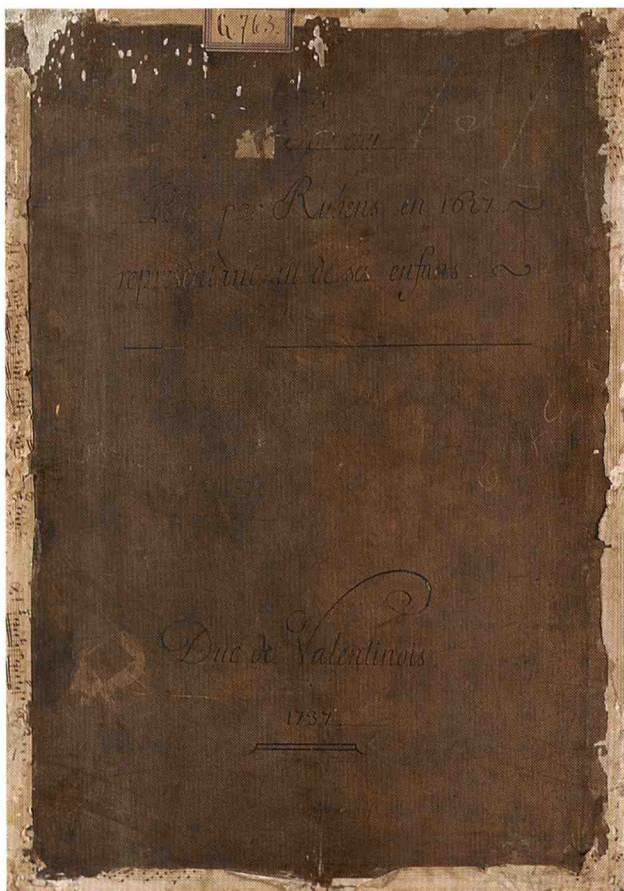 G 763.
par Rubens en 1627
representant un de ses enfans.
Duc de Valentinois
1737.